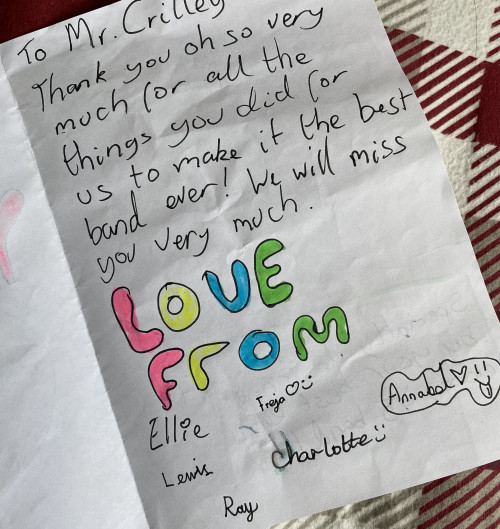 To Mr. Crilley
Thank you oh so very
much for all the
things you did for
us to make it the best
band ever! We will miss
you very much.
LOVE
FROM
Freja
Annabel
Ellie
Charlotte
Lewis
Ray